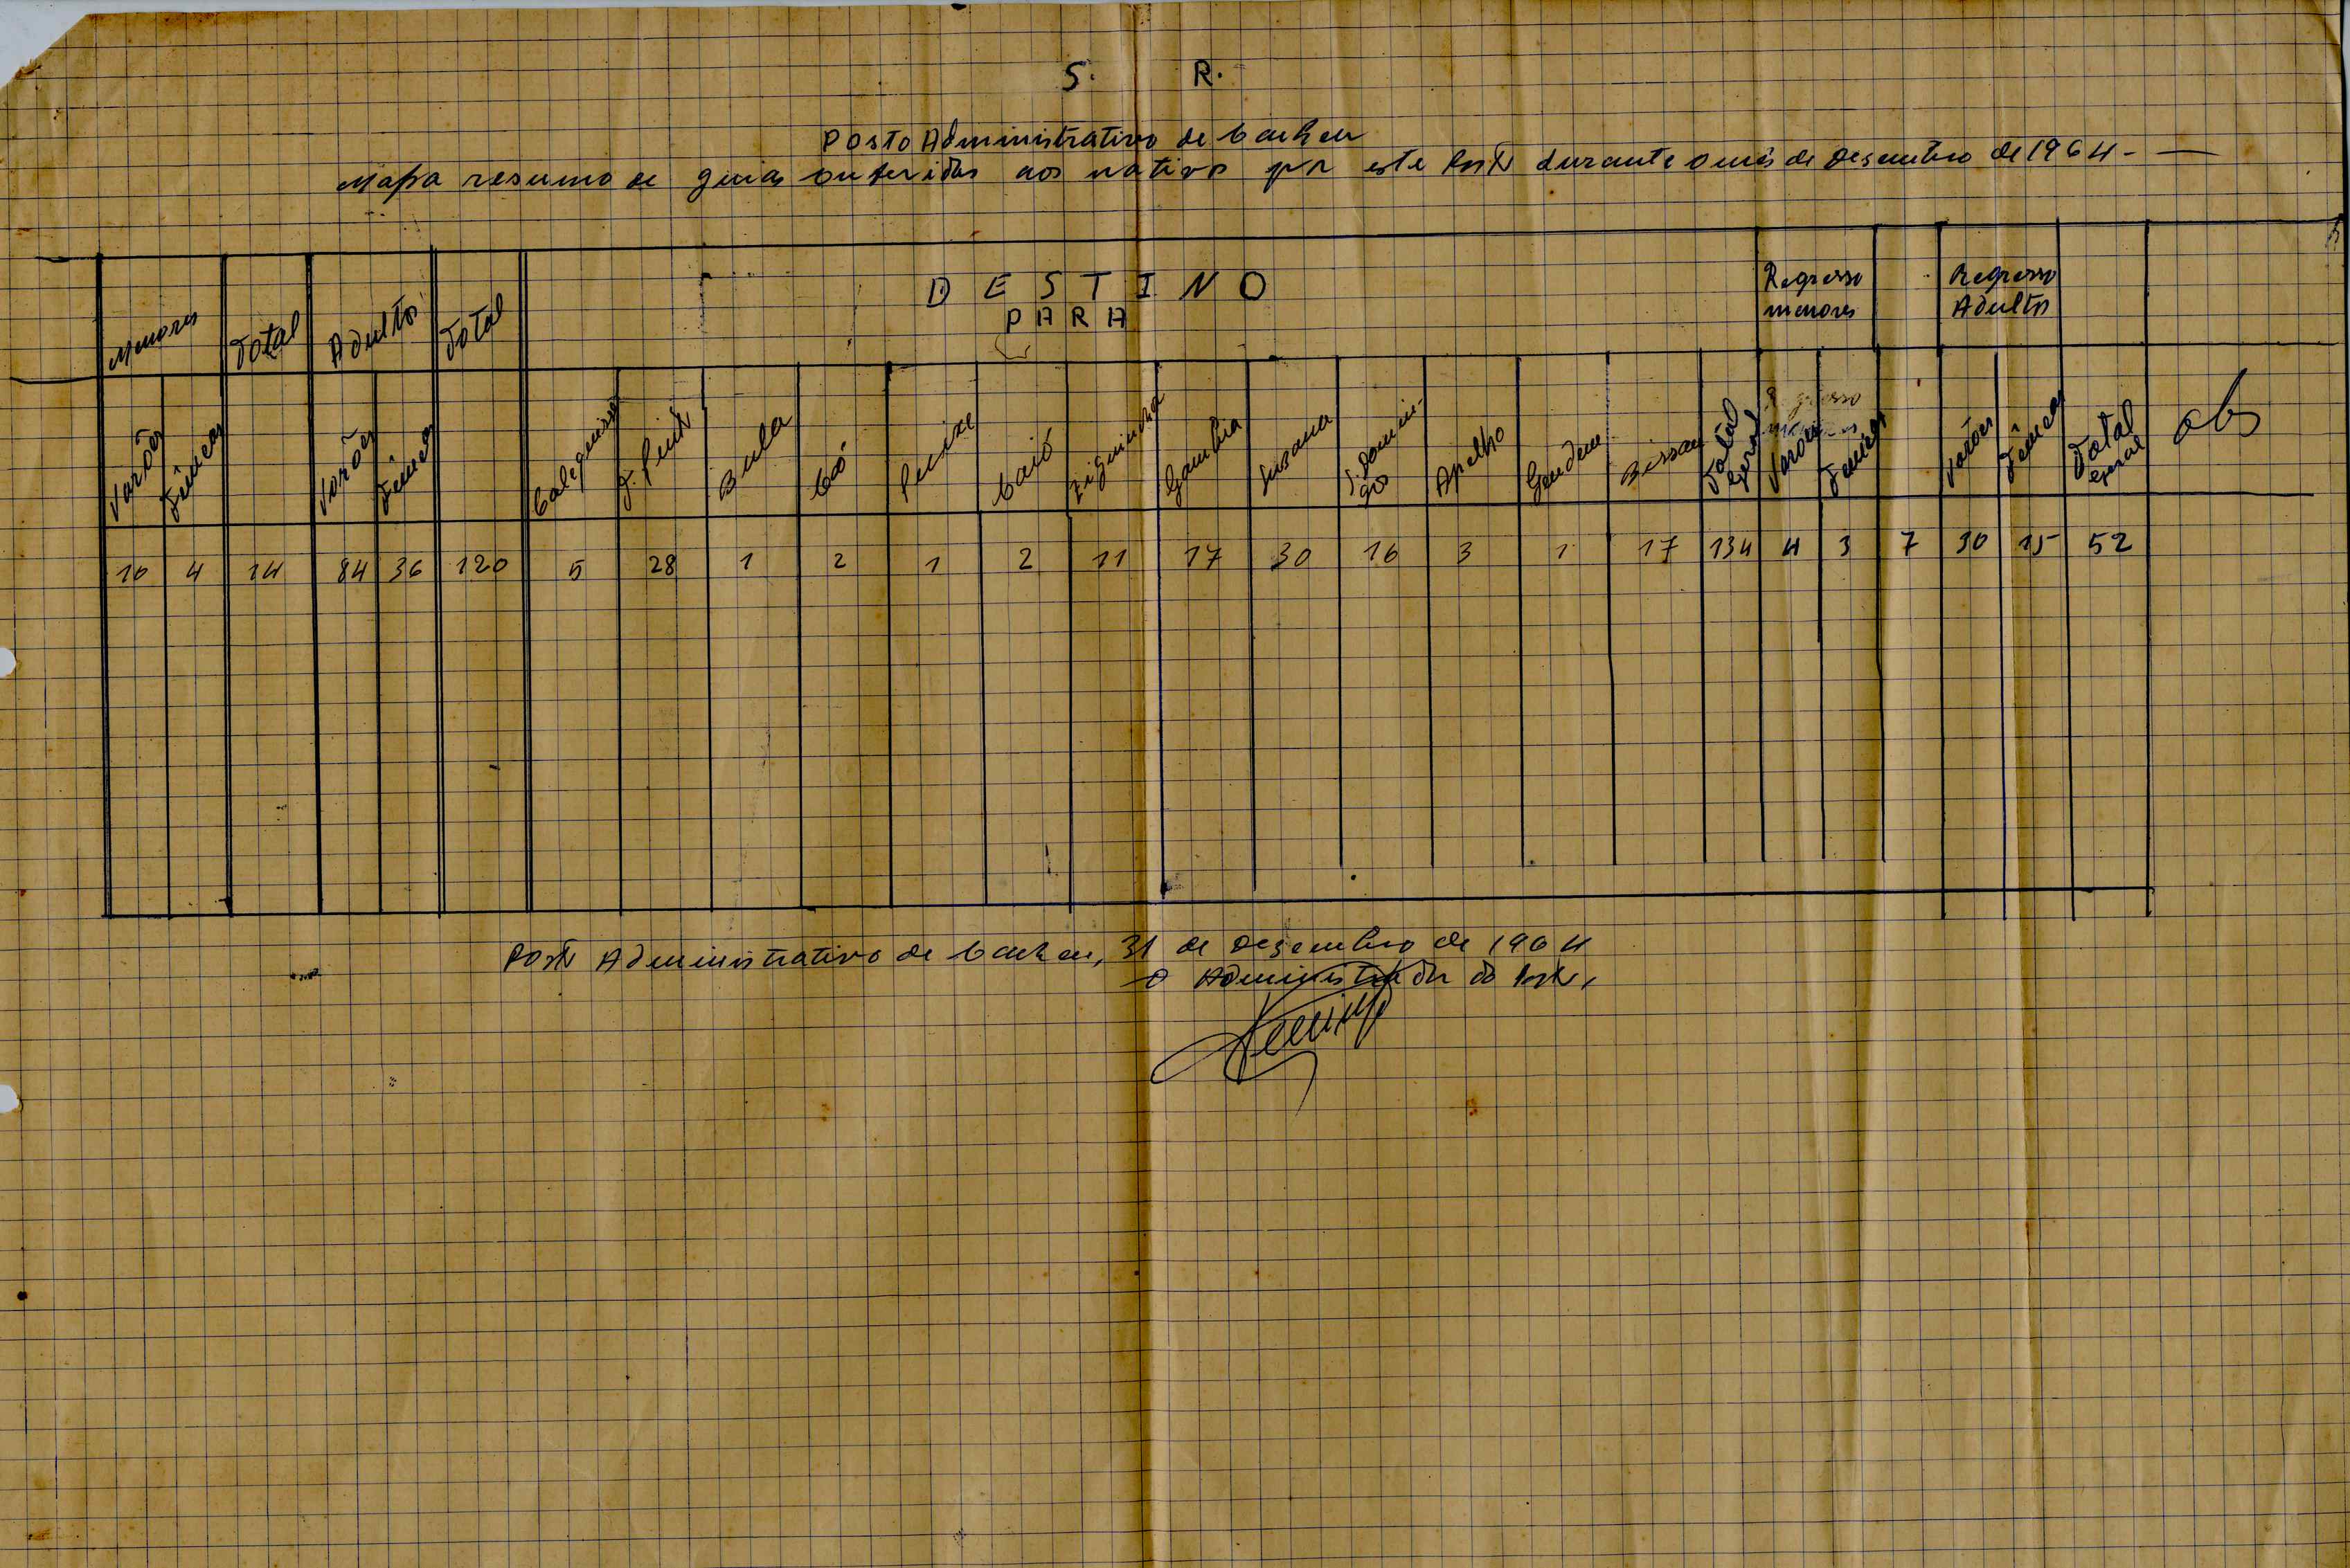 S. R.
Posto Administrativo de Cacheu
Mapa resumo de guias conferidas aos nativos por este Posto durante o mês de Dezembro de 1964 -
DESTINO
PARA
Menores Total Adultos Total Regresso menores Regresso Adultos
Varões Fêmeas Varões Fêmeas Calequisse T. Pinto Bula Có Pecixe Caió Ziguinchor Gambia Susana S. Domingos Apelho Bissau Total Geral Varões Fêmeas Varões Fêmeas Total geral obs
10 4 14 84 36 120 5 28 1 2 1 2 11 17 30 16 3 1 17 134 4 3 7 30 15 52
Posto Administrativo de Cacheu, 31 de Dezembro de 1964
O Administrador do Posto,